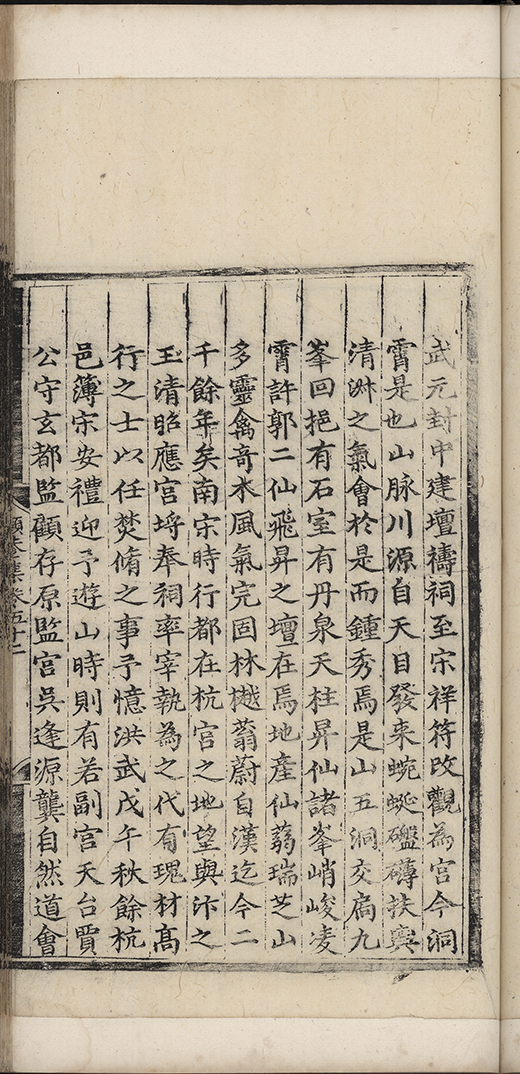 武元封中建壇禱祠至宋祥符改觀為宮今洞
霄是也山脉川源自天目發来蜿蜒礚礴扶輿
清淑之氣會於是而鍾秀焉是山五洞交扃九
峯回挹有石室有丹泉天柱昇仙諸峯峭峻凌
霄許郭二仙飛昇之壇在焉地產仙蒻瑞芝山
多靈禽奇木風氣完固林樾蓊蔚自漢迄今二
千餘年矣南宋時行都在杭宮之地望與汴之
玉清昭應宮埒奉祠率宰執為之代有瑰材髙
行之士以任焚脩之事予憶洪武戊午秋餘杭
邑薄宋安禮迎予遊山時則有若副宮天台賈
公守玄都監顧存原監宮吳逢源龔自然道會
卷五十二